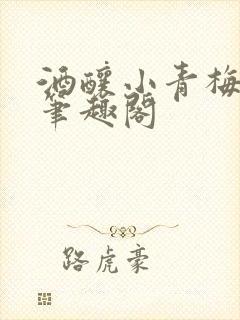 酒釀小青梅
筆趣閣
路虎豪